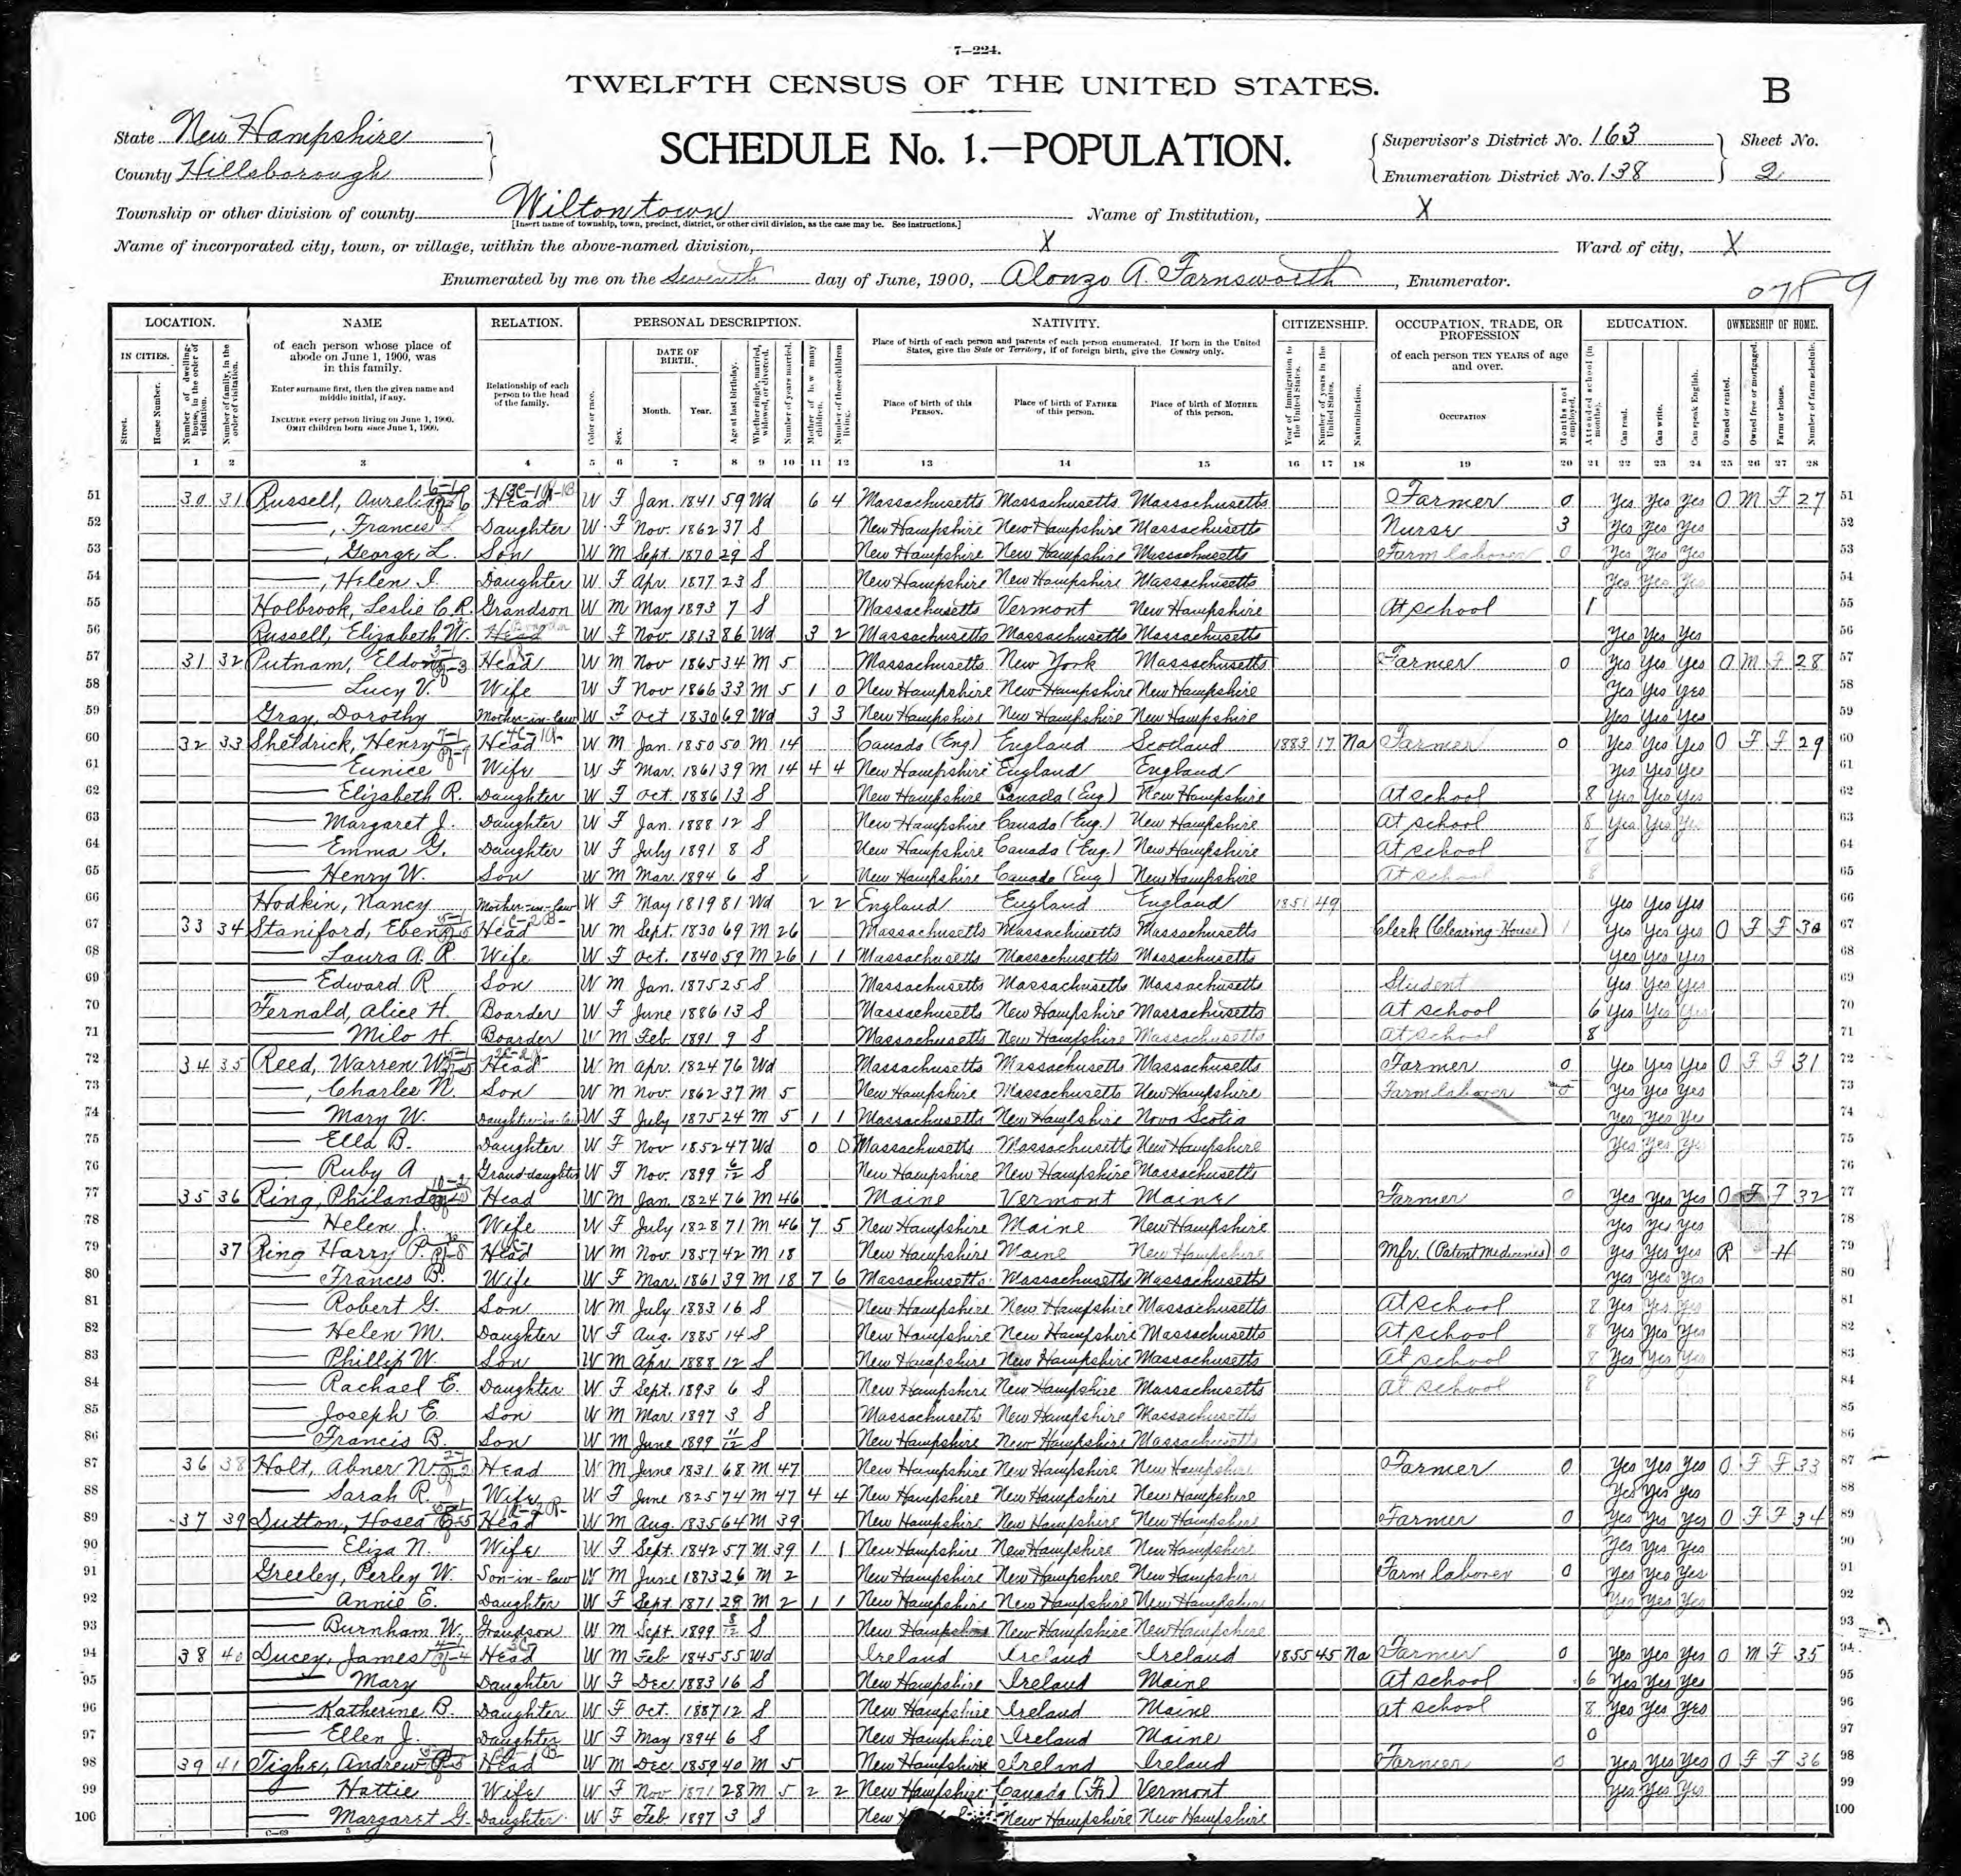 7—224.
TWELFTH CENSUS OF THE UNITED STATES.
B
State New Hampshire
County Hillsborough
SCHEDULE No. 1.—POPULATION.
Supervisor's District No. 163 Sheet No.
Enumeration District No. 138 2
Township or other division of county Wilton town Name of Institution, X
[Insert name of township, town, precinct, district, or other civil division, as the case may be. See instructions.]
Name of incorporated city, town, or village, within the above-named division, X Ward of city, X
Enumerated by me on the Seventh day of June, 1900, Alonzo A. Farnsworth, Enumerator.
LOCATION. NAME RELATION. PERSONAL DESCRIPTION. NATIVITY. CITIZENSHIP. OCCUPATION, TRADE, OR PROFESSION EDUCATION. OWNERSHIP OF HOME.
IN CITIES. Street. House Number. Number of dwelling-house, in the order of visitation. Number of family, in the order of visitation.
of each person whose place of abode on June 1, 1900, was in this family.
Enter surname first, then the given name and middle initial, if any.
INCLUDE every person living on June 1, 1900. OMIT children born since June 1, 1900.
Relationship of each person to the head of the family.
Color or race. Sex. DATE OF BIRTH. Month. Year. Age at last birthday. Whether single, married, widowed, or divorced. Number of years married. Mother of how many children. Number of these children living.
Place of birth of each person and parents of each person enumerated. If born in the United States, give the State or Territory, if of foreign birth, give the Country only.
Place of birth of this PERSON. Place of birth of FATHER of this person. Place of birth of MOTHER of this person.
Year of immigration to the United States. Number of years in the United States. Naturalization.
of each person TEN YEARS of age and over.
OCCUPATION Months not employed.
Attended school (in months). Can read. Can write. Can speak English.
Owned or rented. Owned free or mortgaged. Farm or house. Number of farm schedule.
1 2 3 4 5 6 7 8 9 10 11 12 13 14 15 16 17 18 19 20 21 22 23 24 25 26 27 28
51 30 31 Russell, Aurelia Head W F Jan. 1841 59 Wd 6 4 Massachusetts Massachusetts Massachusetts Farmer 0 Yes Yes Yes O M F 27 51
52 —, Frances L Daughter W F Nov. 1862 37 S New Hampshire New Hampshire Massachusetts Nurse 3 Yes Yes Yes 52
53 —, George L. Son W M Sept. 1870 29 S New Hampshire New Hampshire Massachusetts Farm laborer 0 Yes Yes Yes 53
54 —, Helen I. Daughter W F Apr. 1877 23 S New Hampshire New Hampshire Massachusetts Yes Yes Yes 54
55 Holbrook, Leslie C. R. Grandson W M May 1893 7 S Massachusetts Vermont New Hampshire At school 1 55
56 Russell, Elizabeth W. Head Boarder W F Nov. 1813 86 Wd 3 2 Massachusetts Massachusetts Massachusetts Yes Yes Yes 56
57 31 32 Putnam, Eldon Head W M Nov 1865 34 M 5 Massachusetts New York Massachusetts Farmer 0 Yes Yes Yes O M F 28 57
58 — Lucy V. Wife W F Nov 1866 33 M 5 1 0 New Hampshire New Hampshire New Hampshire Yes Yes Yes 58
59 Gray, Dorothy Mother-in-law W F Oct 1830 69 Wd 3 3 New Hampshire New Hampshire New Hampshire Yes Yes Yes 59
60 32 33 Sheldrick, Henry Head W M Jan. 1850 50 M 14 Canada (Eng) England Scotland 1883 17 Na Farmer 0 Yes Yes Yes O F F 29 60
61 — Eunice Wife W F Mar. 1861 39 M 14 4 4 New Hampshire England England Yes Yes Yes 61
62 — Elizabeth R. Daughter W F Oct. 1886 13 S New Hampshire Canada (Eng) New Hampshire At school 8 Yes Yes Yes 62
63 — Margaret J. Daughter W F Jan. 1888 12 S New Hampshire Canada (Eng.) New Hampshire At school 8 Yes Yes Yes 63
64 — Emma G. Daughter W F July 1891 8 S New Hampshire Canada (Eng.) New Hampshire At school 8 64
65 — Henry W. Son W M Mar. 1894 6 S New Hampshire Canada (Eng) New Hampshire At school 8 65
66 Hodkin, Nancy Mother-in-law W F May 1819 81 Wd 2 2 England England England 1851 49 Yes Yes Yes 66
67 33 34 Staniford, Eben Head W M Sept. 1830 69 M 26 Massachusetts Massachusetts Massachusetts Clerk (Clearing House) 1 Yes Yes Yes O F F 30 67
68 — Laura A. R. Wife W F Oct. 1840 59 M 26 1 1 Massachusetts Massachusetts Massachusetts Yes Yes Yes 68
69 — Edward R Son W M Jan. 1875 25 S Massachusetts Massachusetts Massachusetts Student Yes Yes Yes 69
70 Fernald, Alice H. Boarder W F June 1886 13 S Massachusetts New Hampshire Massachusetts At school 6 Yes Yes Yes 70
71 — Milo H. Boarder W M Feb. 1891 9 S Massachusetts New Hampshire Massachusetts At school 8 71
72 34 35 Reed, Warren W Head W M Apr. 1824 76 Wd Massachusetts Massachusetts Massachusetts Farmer 0 Yes Yes Yes O F F 31 72
73 —, Charles N. Son W M Nov. 1862 37 M 5 New Hampshire Massachusetts New Hampshire Farm laborer Yes Yes Yes 73
74 — Mary W. Daughter-in-law W F July 1875 24 M 5 1 1 Massachusetts New Hampshire Nova Scotia Yes Yes Yes 74
75 — Ella B. Daughter W F Nov 1852 47 Wd 0 0 Massachusetts Massachusetts New Hampshire Yes Yes Yes 75
76 — Ruby A Granddaughter W F Nov. 1899 6/12 S New Hampshire New Hampshire Massachusetts 76
77 35 36 Ring, Philander Head W M Jan. 1824 76 M 46 Maine Vermont Maine Farmer 0 Yes Yes Yes O F F 32 77
78 — Helen J. Wife W F July 1828 71 M 46 7 5 New Hampshire Maine New Hampshire Yes Yes Yes 78
79 37 Ring Harry P. Head W M Nov. 1857 42 M 18 New Hampshire Maine New Hampshire Mfr. (Patent Medicines) 0 Yes Yes Yes R H 79
80 — Frances B. Wife W F Mar. 1861 39 M 18 7 6 Massachusetts Massachusetts Massachusetts Yes Yes Yes 80
81 — Robert G. Son W M July 1883 16 S New Hampshire New Hampshire Massachusetts At school 8 Yes Yes Yes 81
82 — Helen M. Daughter W F Aug. 1885 14 S New Hampshire New Hampshire Massachusetts At school 8 Yes Yes Yes 82
83 — Phillip W. Son W M Apr 1888 12 S New Hampshire New Hampshire Massachusetts At school 8 Yes Yes Yes 83
84 — Rachael E. Daughter W F Sept. 1893 6 S New Hampshire New Hampshire Massachusetts At school 8 84
85 — Joseph E. Son W M Mar. 1897 3 S Massachusetts New Hampshire Massachusetts 85
86 — Francis B. Son W M June 1899 11/12 S New Hampshire New Hampshire Massachusetts 86
87 36 38 Holt, Abner N. Head W M June 1831 68 M 47 New Hampshire New Hampshire New Hampshire Farmer 0 Yes Yes Yes O F F 33 87
88 — Sarah R. Wife W F June 1825 74 M 47 4 4 New Hampshire New Hampshire New Hampshire Yes Yes Yes 88
89 37 39 Dutton, Hosea Head W M Aug. 1835 64 M 39 New Hampshire New Hampshire New Hampshire Farmer 0 Yes Yes Yes O F F 34 89
90 — Eliza N. Wife W F Sept. 1842 57 M 39 1 1 New Hampshire New Hampshire New Hampshire Yes Yes Yes 90
91 Greeley, Perley W. Son-in-law W M June 1873 26 M 2 New Hampshire New Hampshire New Hampshire Farm laborer 0 Yes Yes Yes 91
92 — Annie E. Daughter W F Sept 1871 28 M 2 1 1 New Hampshire New Hampshire New Hampshire Yes Yes Yes 92
93 — Burnham W. Grandson W M Sept. 1899 8/12 S New Hampshire New Hampshire New Hampshire 93
94 38 40 Ducey, James Head W M Feb 1845 55 Wd Ireland Ireland Ireland 1855 45 Na Farmer 0 Yes Yes Yes O M F 35 94
95 — Mary Daughter W F Dec 1883 16 S New Hampshire Ireland Maine At school 6 Yes Yes Yes 95
96 — Katherine B. Daughter W F Oct. 1887 12 S New Hampshire Ireland Maine At school 8 Yes Yes Yes 96
97 — Ellen J. Daughter W F May 1894 6 S New Hampshire Ireland Maine 0 97
98 39 41 Tighe, Andrew Head W M Dec 1859 40 M 5 New Hampshire Ireland Ireland Farmer 0 Yes Yes Yes O F F 36 98
99 — Hattie Wife W F Nov 1871 28 M 5 2 2 New Hampshire Canada (Fr) Vermont Yes Yes Yes 99
100 — Margaret G. Daughter W F Feb. 1897 3 S New New Hampshire New Hampshire 100